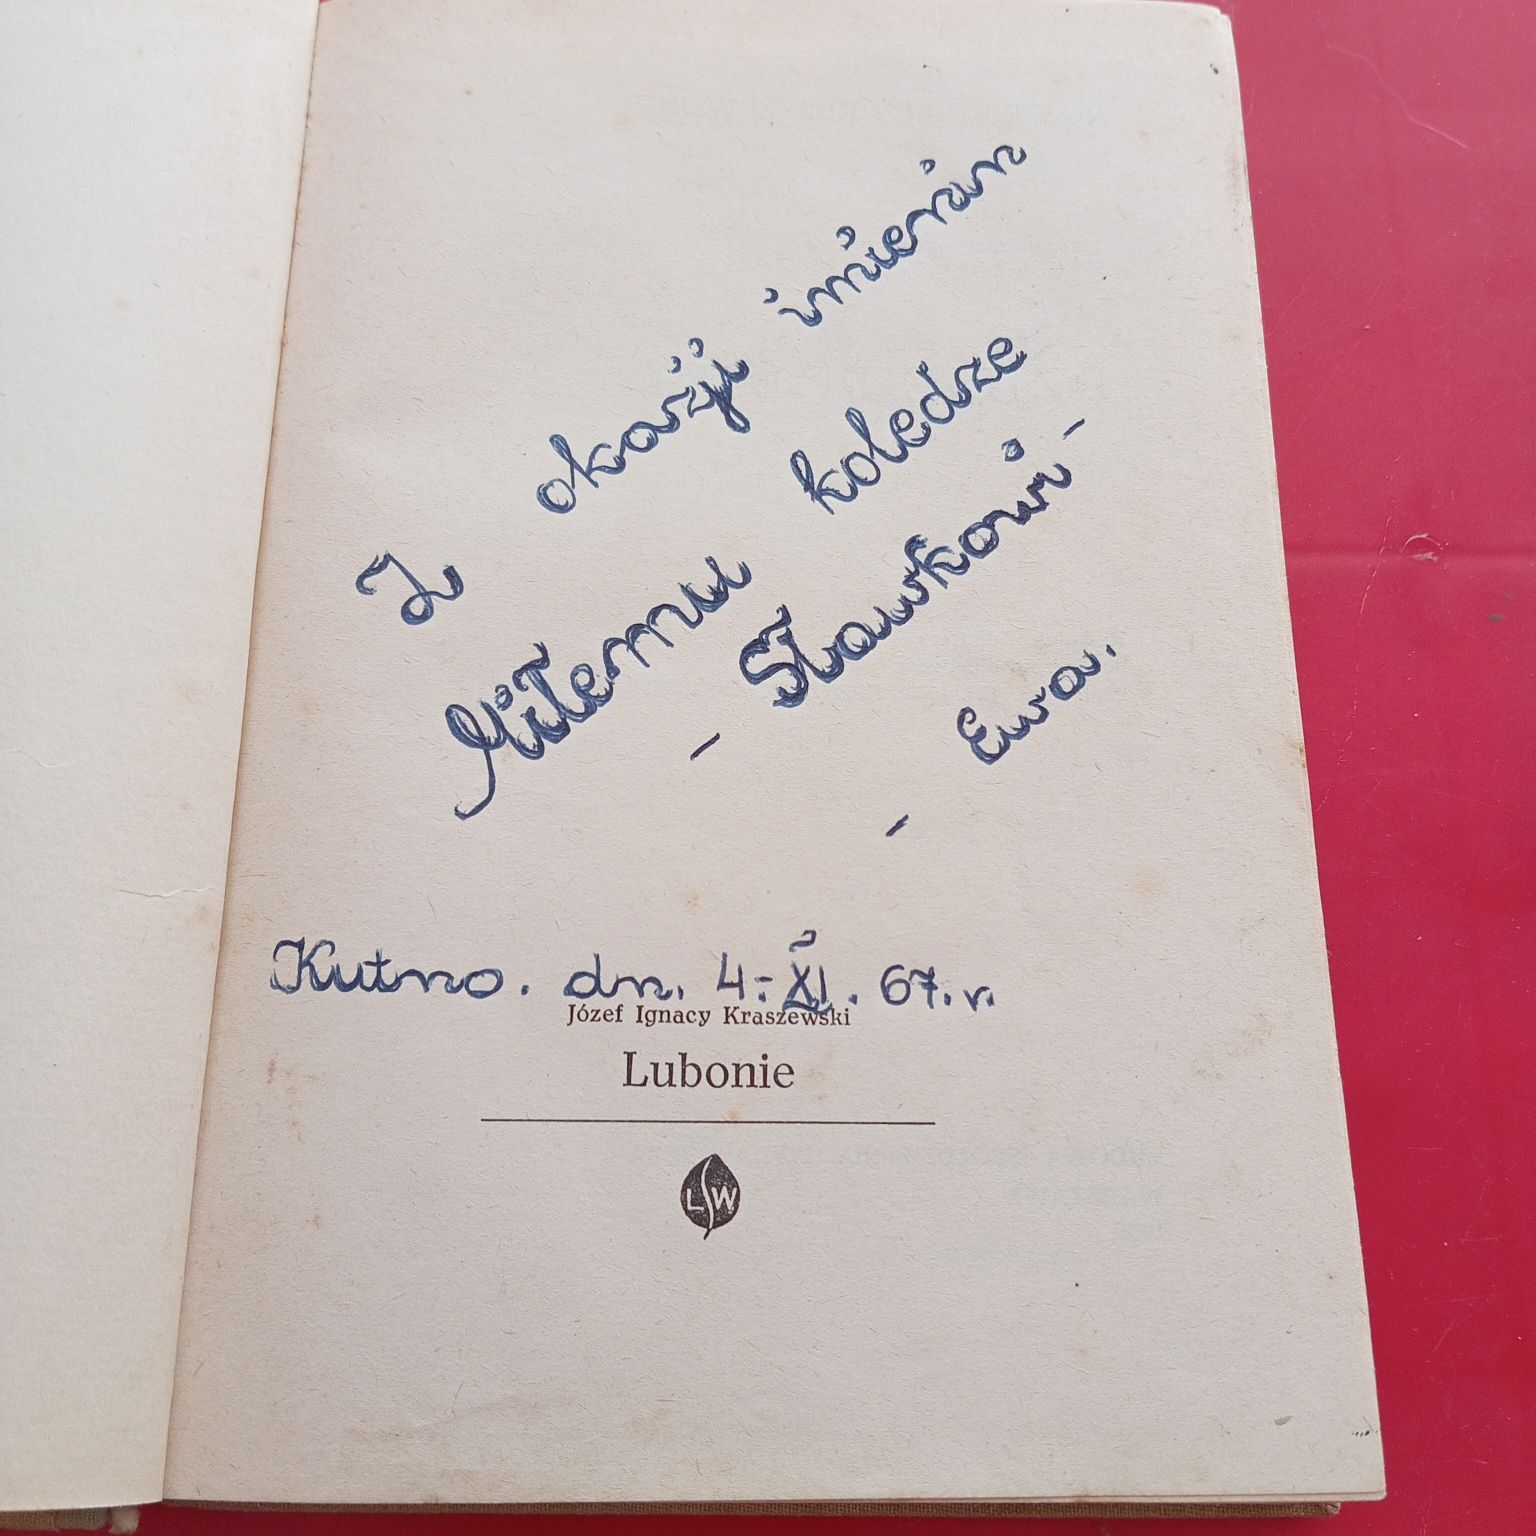 Z okazji imienin
Miłemu koledze
- Sławkowi -
- Ewa.
Kutno. dn. 4-XI. 67. r.
Józef Ignacy Kraszewski
Lubonie
LSW